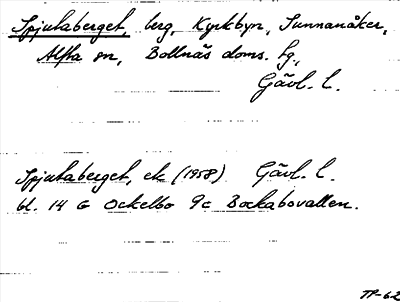 Spjutaberget, berg, Kyrkbyn, Sunnanåker,
Alfta sn, Bollnäs doms. hg.,
Gävl. l.
Spjutaberget, ek (1958) Gävl. l.
bl. 14 G Ockelbo 9c Bockabovallen.
TP-62